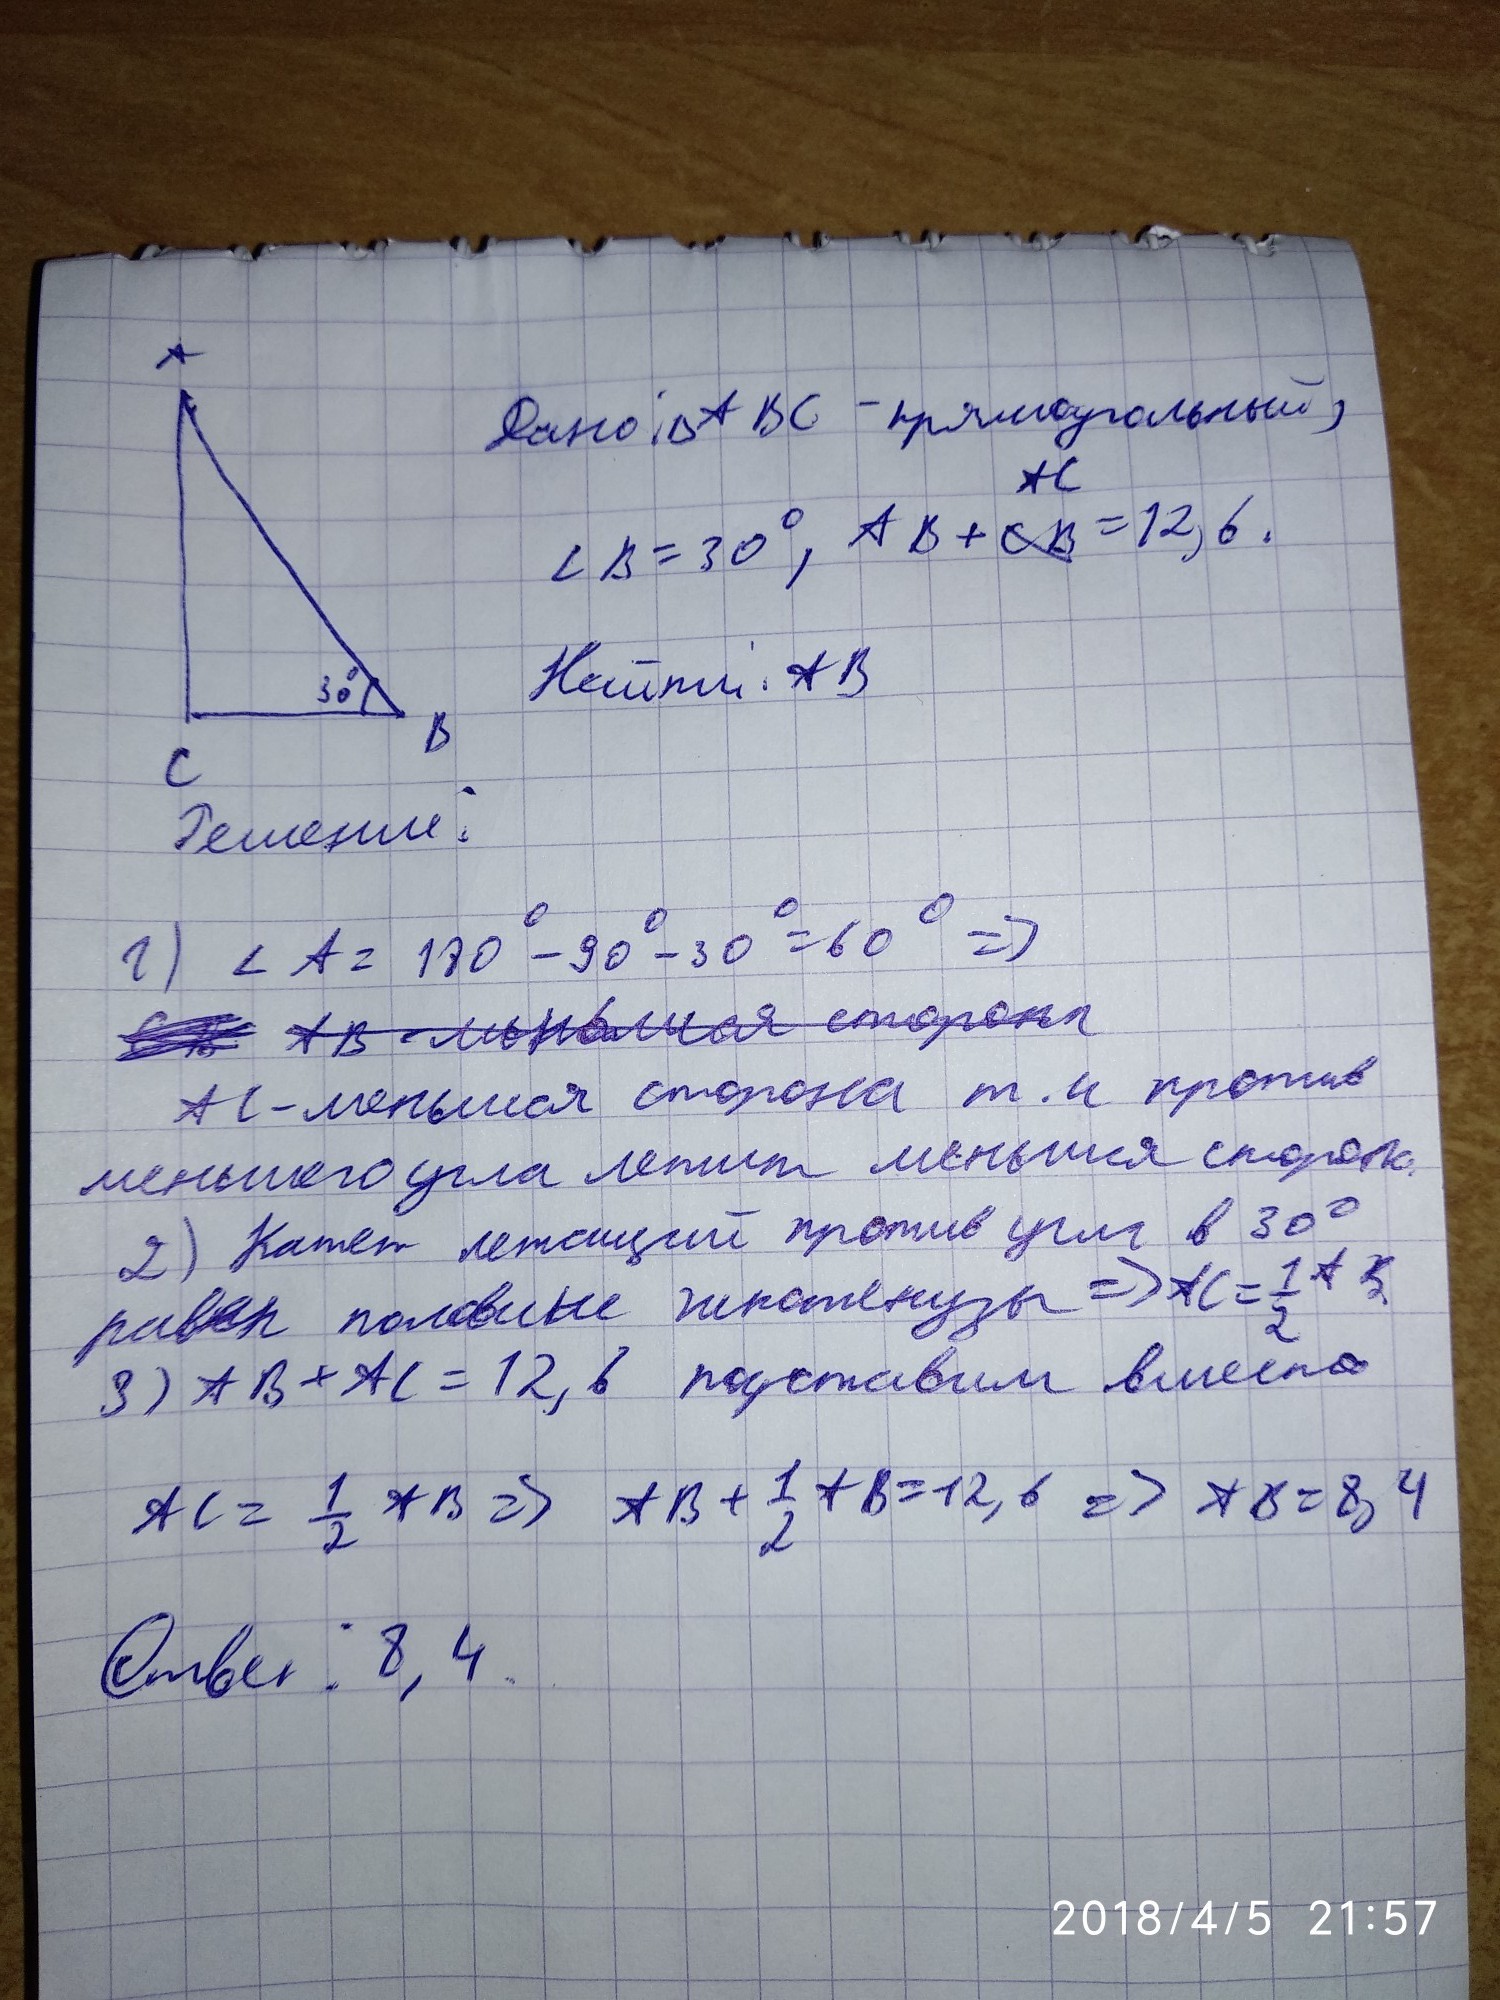 A
Дано: △ABC - прямоугольный,
AC
∠B=30°, AB+CB=12,6.
Найти: AB
30°
B
C
Решение:
1) ∠A= 180°-90°-30°=60° =>
AB - меньшая сторона
AC-меньшая сторона т.к против
меньшего угла лежит меньшая сторона.
2) Катет лежащий против угла в 30°
равен половине гипотенузы => AC=1/2 AB
3) AB+AC=12,6 подставим вместо
AC= 1/2 AB => AB+1/2 AB=12,6 => AB=8,4
Ответ: 8,4.
2018/4/5 21:57